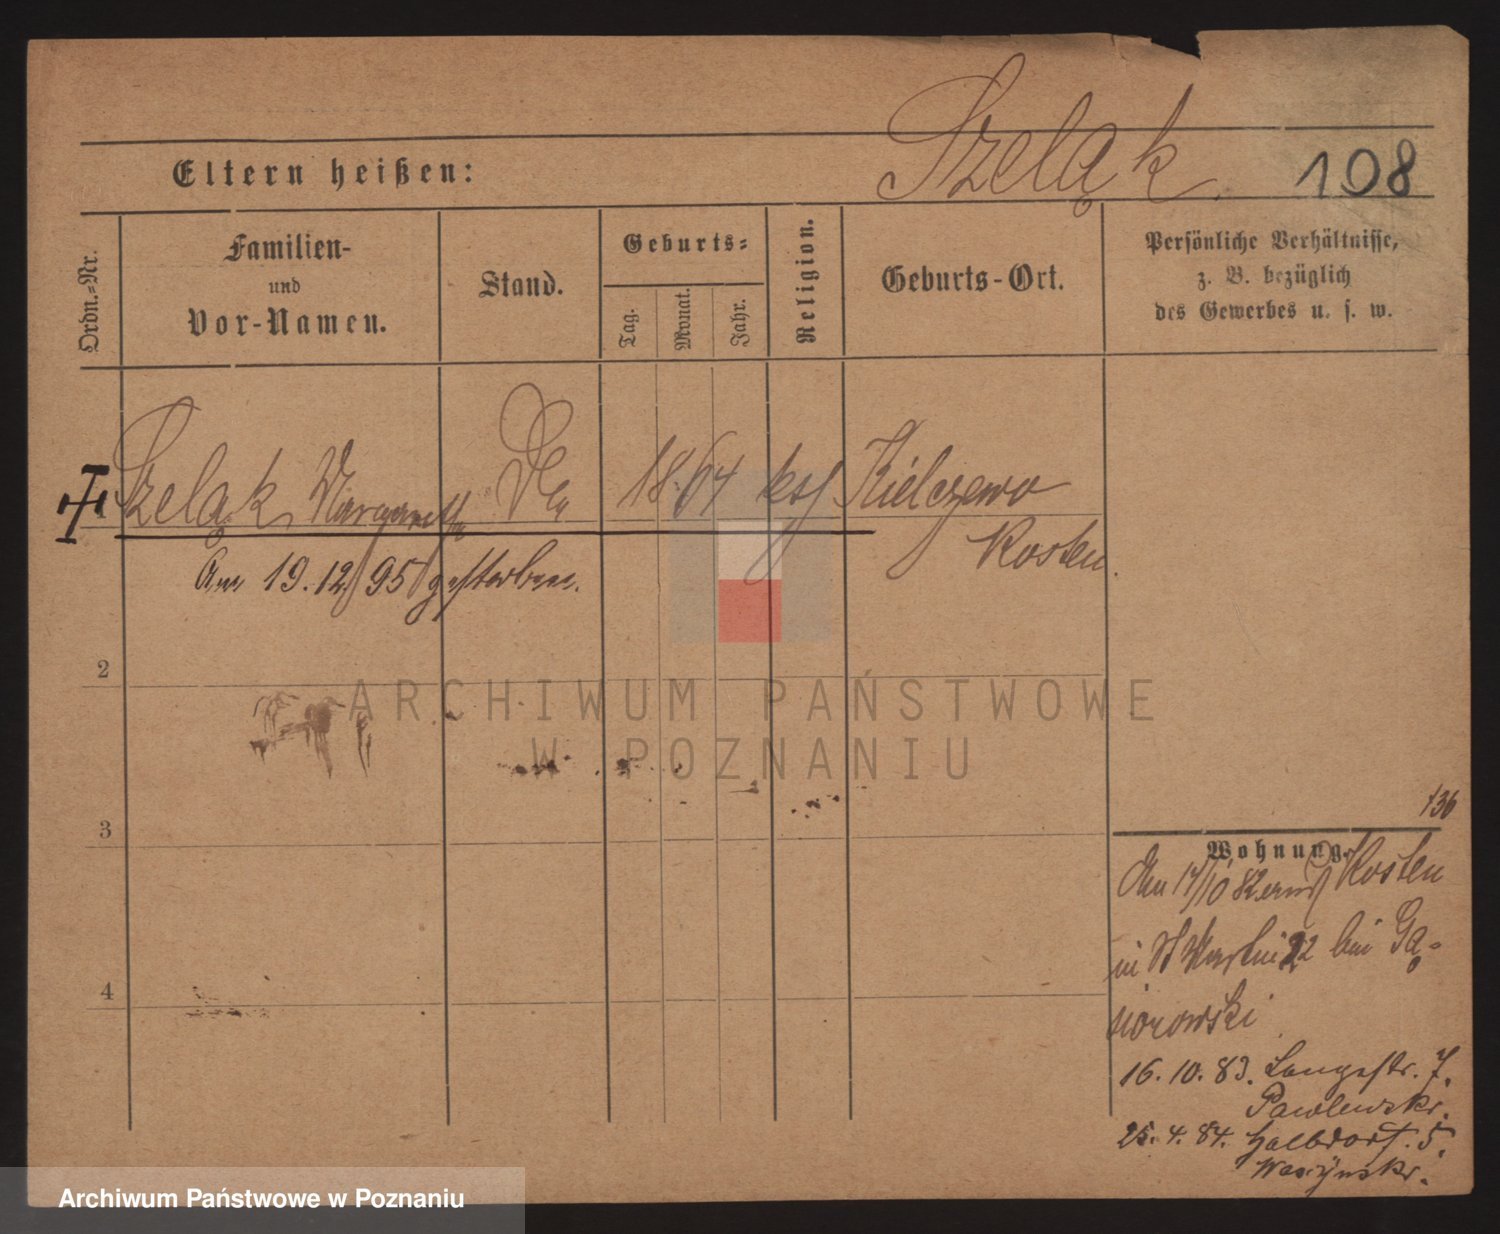 Szeląk.
108
Eltern heißen:
Ordn.-Nr.
Familien-
und
Vor-Namen.
Stand.
Geburts-
Tag.
Monat.
Jahr.
Religion.
Geburts-Ort.
Persönliche Verhältnisse,
z. B. bezüglich
des Gewerbes u. s. w.
1
Szeląk Margaretha
1864
Kielczewo
Kosten.
Am 19.12.95 gestorben.
2
3
4
136
Wohnung.
Am 17/10 82 Kosten
in St Martin 22 bei Gą-
siorowski
16.10.83. Langestr. 7.
Pawlewski.
25.4.84. Halbdorf. 5.
ARCHIWUM PAŃSTWOWE
W POZNANIU
Archiwum Państwowe w Poznaniu